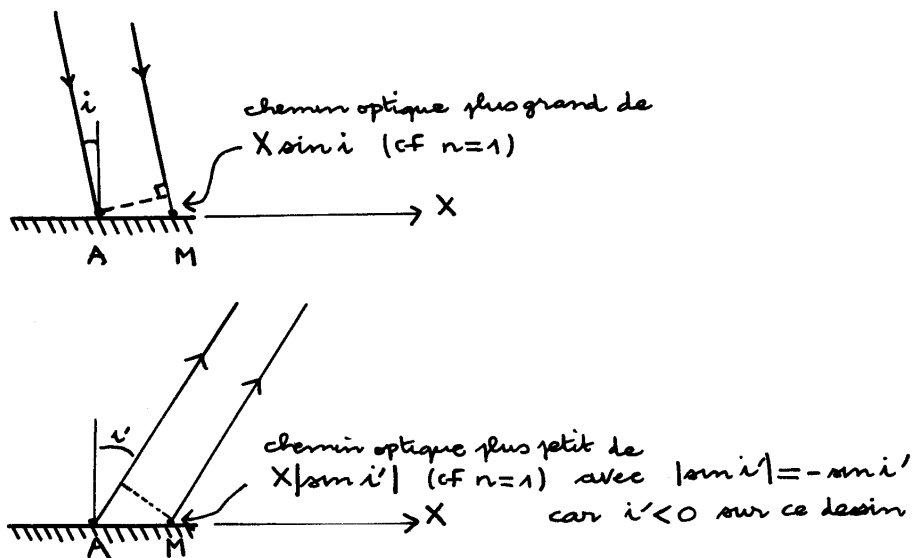 i
chemin optique plus grand de
X sin i (cf n=1)
X
A M
i'
chemin optique plus petit de
X|sin i'| (cf n=1) avec |sin i'|=-sin i'
X car i'<0 sur ce dessin
A M